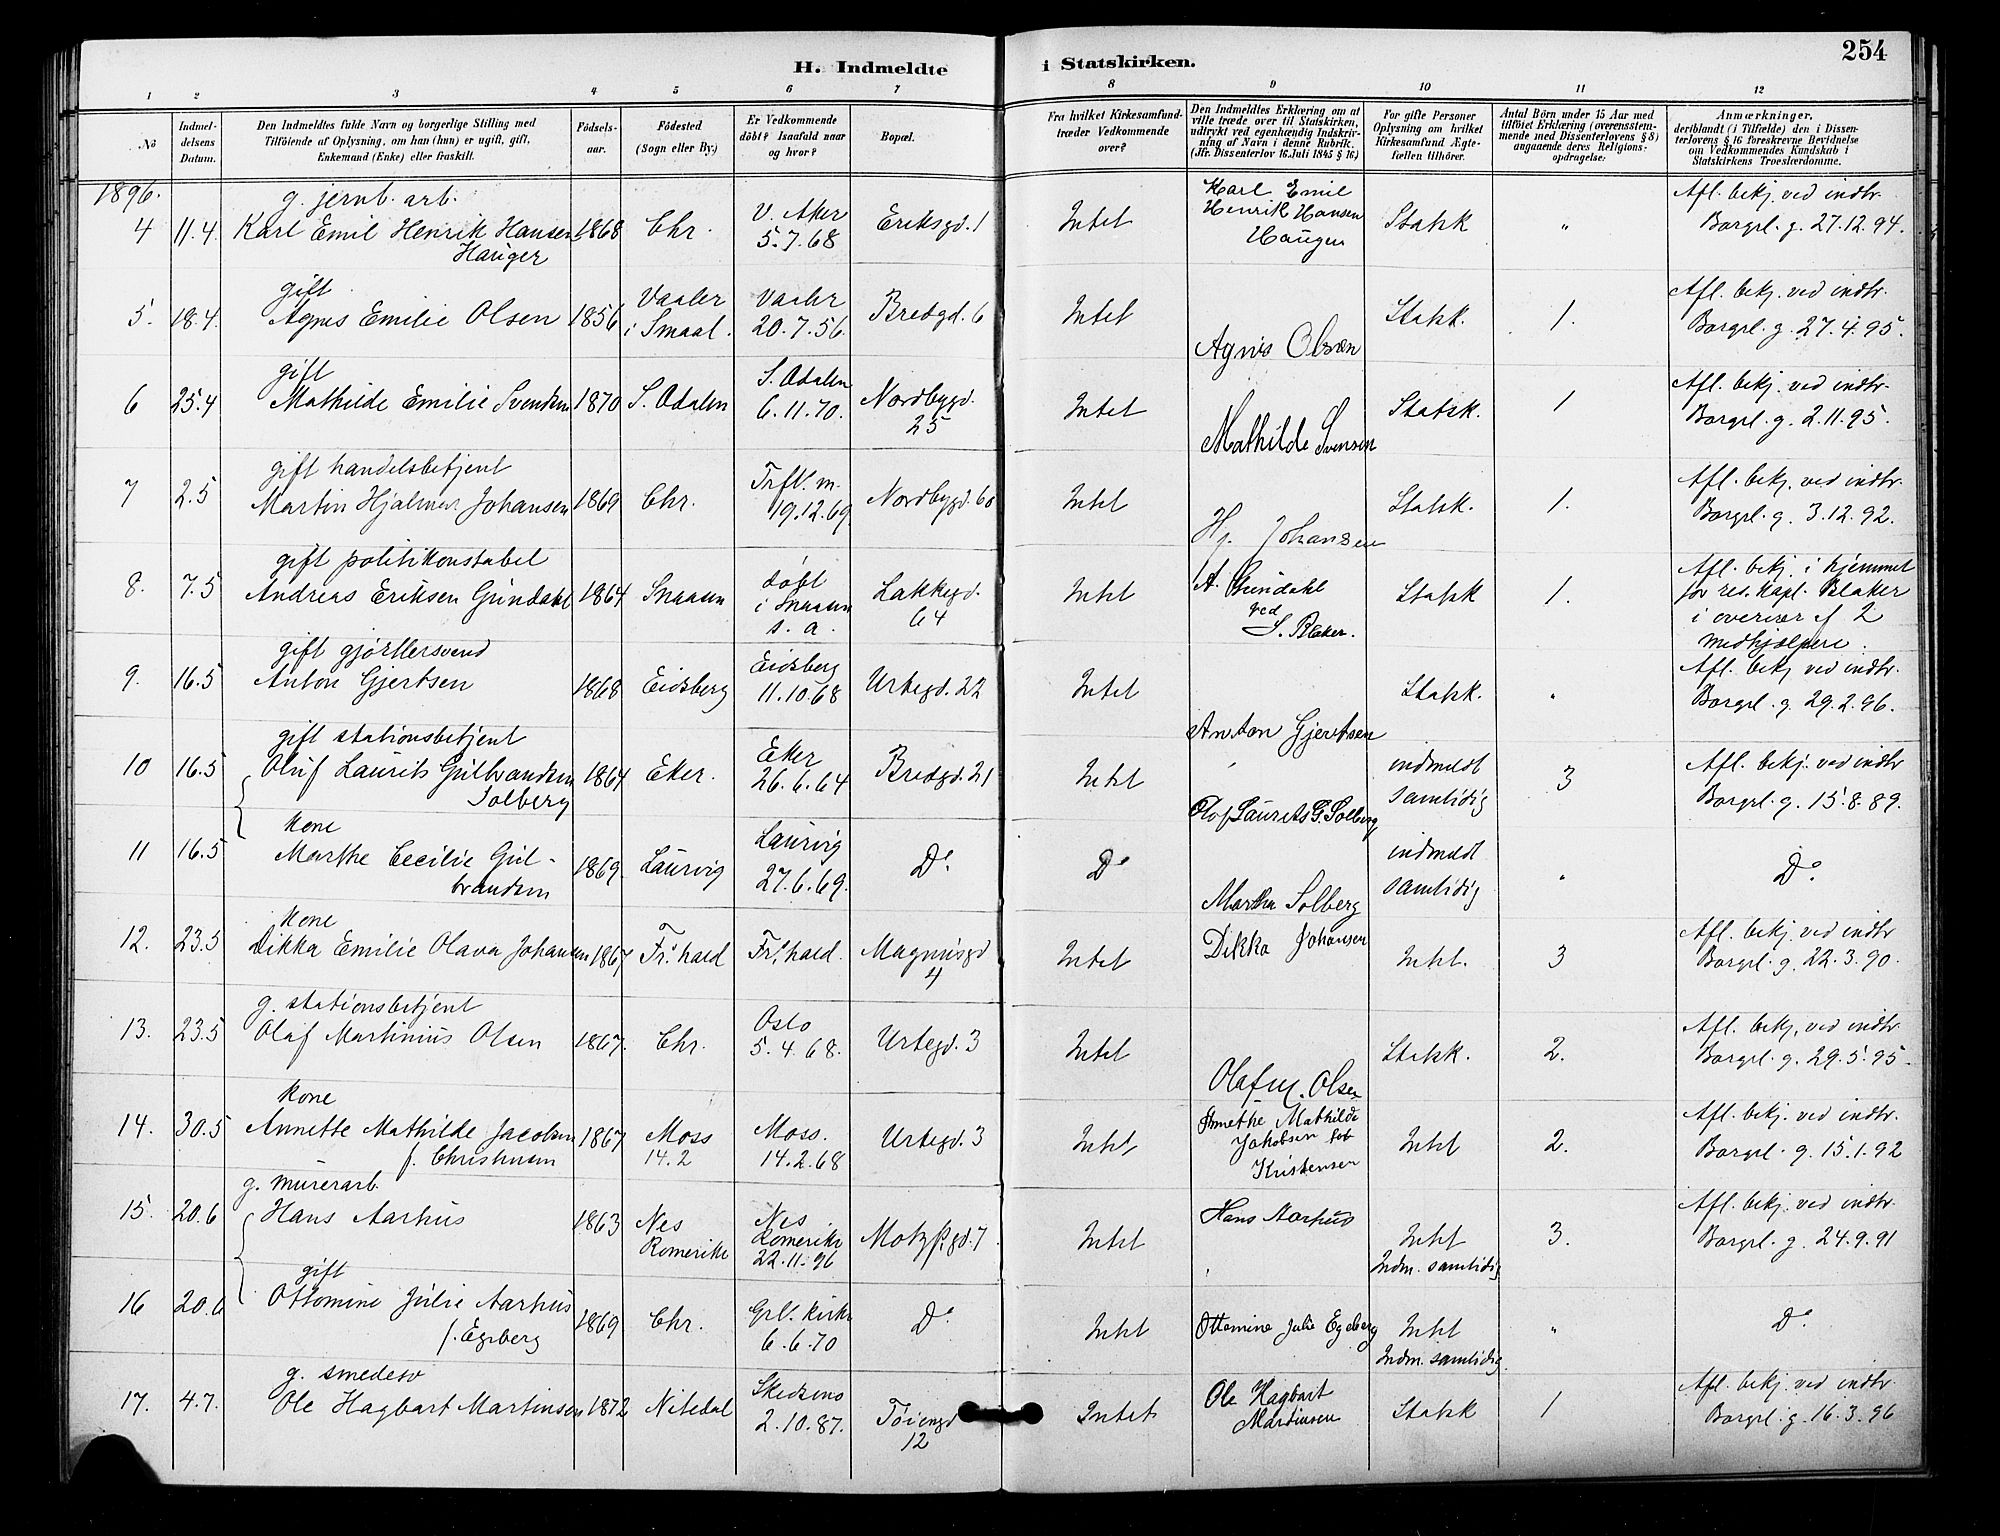 254
H. Indmeldte i Statskirken.
1 2 3 4 5 6 7 8 9 10 11 12
No
Indmel-
delsens
Datum.
Den Indmeldtes fulde Navn og borgerlige Stilling med
Tilföiende af Oplysning, om han (hun) er ugift, gift,
Enkemand (Enke) eller fraskilt.
Födsels-
aar.
Födested
(Sogn eller By.)
Er Vedkommende
döbt? Isaafald naar
og hvor?
Bopæl.
Fra hvilket Kirkesamfund-
træder Vedkommende
over?
Den Indmeldtes Erklæring om at
ville træde over til Statskirken,
udtrykt ved egenhændig Indskriv-
ning af Navn i denne Rubrik.
(Jfr. Dissenterlov 16. Juli 1845 § 16.)
For gifte Personer
Oplysning om hvilket
Kirkesamfund Ægte-
fællen tilhörer.
Antal Börn under 15 Aar med
tilföiet Erklæring (overensstem-
mende med Dissenterlovens § 8)
angaaende deres Religions-
opdragelse:
Anmærkninger,
deriblandt (i Tilfælde) den i Dissen-
terlovens § 16 foreskrevne Bevidnelse
om Vedkommendes Kundskab i
Statskirkens Troeslærdomme.
1896.
g. jernb. arb.
4 11.4. Karl Emil Henrik Hansen 1868 Chr. V. Aker Eriksgd. 1 Intet Karl Emil Statsk " Afl. bekj. ved indtr.
Hauger 5.7.68 Henrik Hansen Borgerl. g. 27.12.94.
Haugen
gift
5. 18.4. Agnes Emilie Olsen 1856 Vaaler Vaaler Bredgd. 6 Intet Agnes Olsen Statsk. 1. Afl. bekj. ved indtr.
i Smaal. 20.7.56. Borgerl. g. 27.4.95.
gift
6 25.4 Mathilde Emilie Svendsen 1870 S. Odalen S. Odalen Nordbygd. Intet Mathilde Svensen Statsk. 1 Afl. bekj. ved indtr.
6.11.70. 25 Borgerl. g. 2.11.95.
gift handelsbetjent
7 2.5 Martin Hjalmar Johansen 1869 Chr. Trfk. m. Nordbygd. 60 Intet Hj. Johansen Statsk. 1. Afl. bekj. ved indtr.
19.12.69 Borgerl. g. 3.12.92.
gift politikonstabel
8. 7.5 Andreas Eriksen Grindahl 1864 Snaasen döbt Lakkegd. Intet A. Grindahl Statsk 1. Afl. bekj. i hjemmet
i Snaasen 64 ved for res. kapl. Blaker
s. a. S. Blaker. i overvær af 2
medhjælpere.
gift gjörtlersvend
9. 16.5 Anton Gjertsen 1868 Eidsberg Eidsberg Urtegd. 22 Intet Anton Gjertsen Statsk. " Afl. bekj. ved indtr.
11.10.68 Borgerl. g. 29.2.96.
gift stationsbetjent
10 16.5 Oluf Laurits Gulbrandsen 1864 Eker. Eker Bredgd. 21 Intet Olof Laurets G. Solberg indmeldt 3 Afl. bekj. ved indtr
Solberg 26.6.64 samtidig Borgerl. g. 15.8.89.
kone
11 16.5 Marthe Cecilie Gul- 1869. Laurvig Laurvig Do. Do Martha Solberg indmeldt " Do.
brandsen 27.6.69. samtidig
kone
12. 23.5 Dikka Emilie Olava Johansen 1867 Fr.hald Fr.hald. Magnusgd Intet Dikka Johansen Intet. 3 Afl. bekj. ved indtr
4 Borgerl. g. 22.3.90.
g. stationsbetjent
13. 23.5 Olaf Martinius Olsen 1867. Chr. Oslo Urtegd. 3 Intet Olaf M. Olsen Statsk. 2. Afl. bekj. ved indtr.
5.4.68. Borgerl. g. 29.5.95.
kone
14. 30.5 Annette Mathilde Jacobsen 1867 Moss Moss. Urtegd. 3 Intet, Annethe Mathilde Intet 2. Afl. bekj. ved indtr.
f. Christensen 14.2 14.2.68 Jakobsen föt Borgerl. g. 15.1.92
Kristensen
g. murerarb.
15. 20.6 Hans Aarhus 1863 Nes Nes Motzf.gd. 7 Intet Hans Aarhus Intet 3. Afl. bekj. ved indtr.
Romerike Romerike Indm. samtidig Borgerl. g. 24.9.91
22.11.96
gift
16 20.6 Ottomine Julie Aarhus 1869 Chr. Grl. kirke Do Intet Ottomine Julie Egeberg Intet " Do.
f. Egeberg 6.6.70 Indm. samtidig
g. smedesv
17. 4.7. Ole Hagbart Martinsen 1872 Nitedal Skedsmo Töiengd Intet Ole Hagbart Statsk 1 Afl. bekj. ved indtr.
2.10.87. 12 Martinsen Borgerl. g. 16.3.96